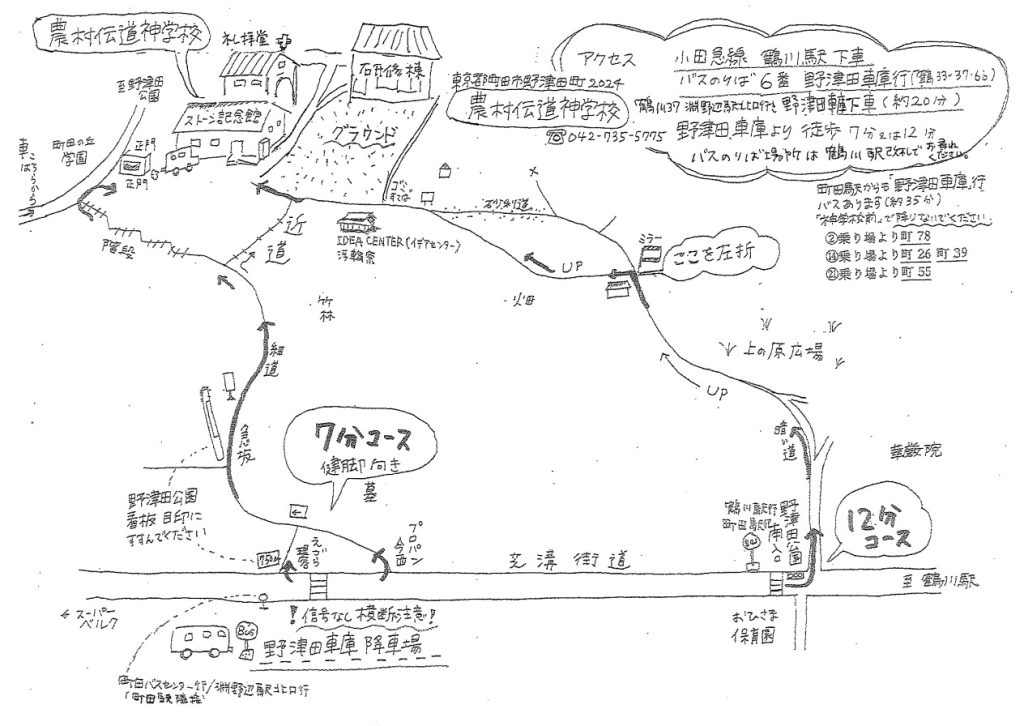 農村伝道神学校
礼拝堂
石研修棟
至野津田
公園
ストーン記念館
グラウンド
町田の丘
学園
正門
正門
車
こちらから
階段
近道
ゴミ
すてば
IDEA CENTER (イデアセンター)
浮輪寮
砂利道
竹林
畑
UP
ミラー
ここを左折
アクセス
小田急線 鶴川駅下車
バスのりば6番 野津田車庫行(鶴33・37・66)
東京都町田市野津田町2024
農村伝道神学校
☎042-735-5775
野津田車庫下車(約20分)
野津田車庫より 徒歩 7分又は12分
バスのりば場所は鶴川駅改札で
お尋ね
ください。
町田駅からも「野津田車庫」行
バスあります(約35分)
"神学校前"で降りないでください
②乗り場より町78
⑭乗り場より町26 町39
㉑乗り場より町55
上の原広場
UP
暗い道
華厳院
細道
急坂
7分コース
健脚向き
墓
野津田公園
看板 目印に
すすんでください
750m
プロパン
12分
コース
鶴川駅行
町田駅行
野津田公園
南入口
Bus
芝溝街道
至鶴川駅
おひさま
保育園
←スーパー
ベルク
!信号なし横断注意!
Bus
野津田車庫 降車場
町田バスセンター行/淵野辺駅北口行